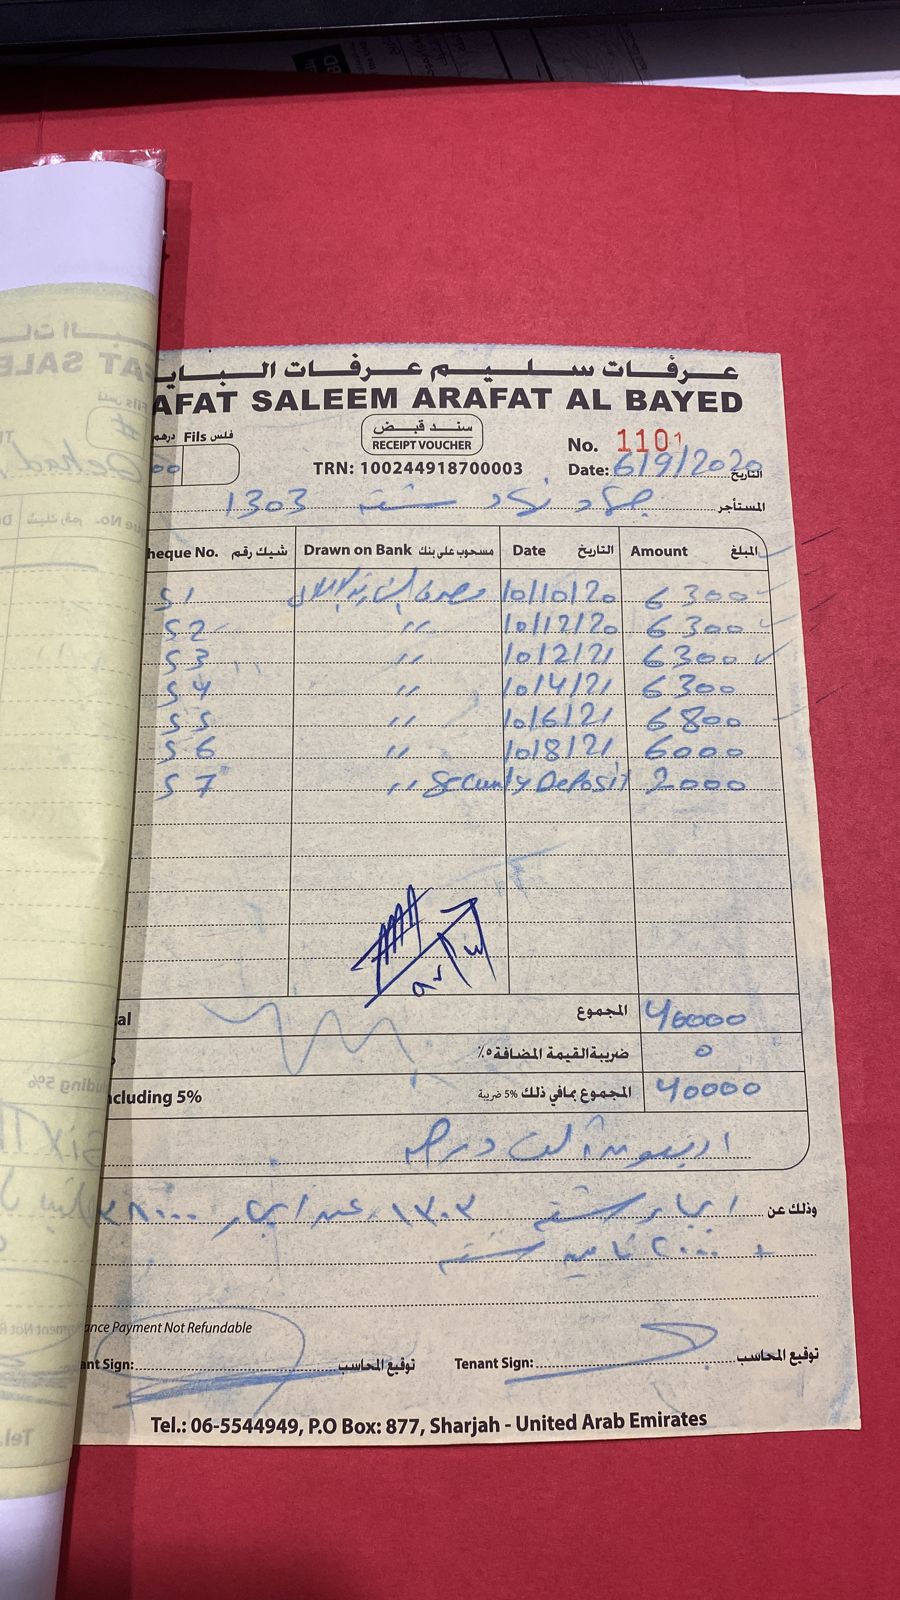 عرفات سليم عرفات البايـ
AFAT SALEEM ARAFAT AL BAYED
درهم Fils فلس
سند قبض
RECEIPT VOUCHER
No. 1101
TRN: 100244918700003
Date: 6/9/2020 التاريخ
المستأجر جهاد نهاد شقة 1303
heque No. شيك رقم Drawn on Bank مسحوب على بنك Date التاريخ Amount المبلغ
51 مصرف الشارقة الإسلامي 10/10/20 6300
52 " 10/12/20 6300
53 " 10/2/21 6300
54 " 10/4/21 6300
55 " 10/6/21 6800
56 " 10/8/21 6000
57 " Security Deposit 2000
al المجموع 40000
ضريبة القيمة المضافة ٥٪ 0
cluding 5% المجموع بمافي ذلك 5% ضريبة 40000
اربعون الف درهم
وذلك عن ايجار شقة ١٣٠٣ عقد ايجار ٣٨٠٠٠
+ ٢٠٠٠ تامين شقة
ance Payment Not Refundable
ant Sign: توقيع المحاسب Tenant Sign: توقيع المحاسب
Tel.: 06-5544949, P.O Box: 877, Sharjah - United Arab Emirates